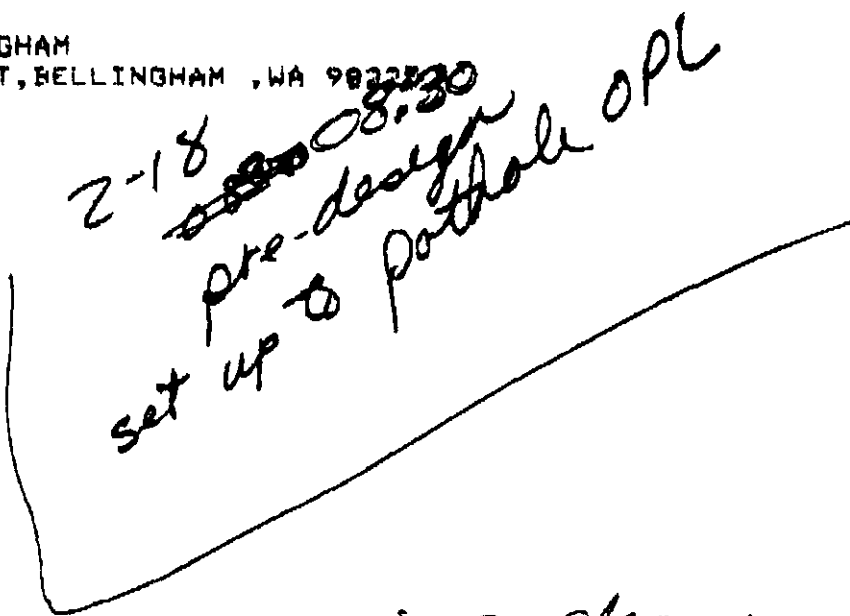 GHAM
T,BELLINGHAM ,WA
2-18 08:30
pre-design
set up to pothole OPL